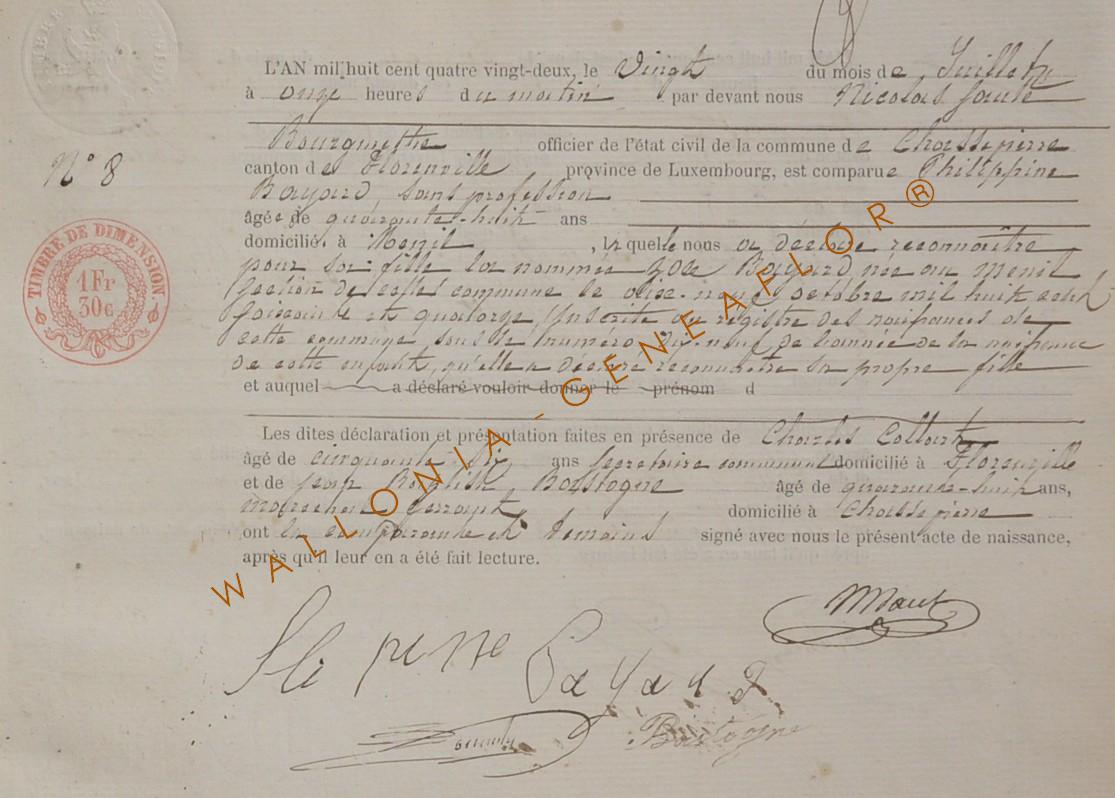 L'AN mil huit cent quatre vingt-deux, le Vingt du mois de Juillet
à onze heures du matin par devant nous Nicolas
Bourgmestre officier de l'état civil de la commune de Chassepierre
N° 8
canton de Florenville province de Luxembourg, est comparue Philippine
Bayard, sans profession
âgée de quarante-huit ans
TIMBRE DE DIMENSION.
1 Fr
30c
domicilié à Menil, laquelle nous a déclaré reconnaître
pour sa fille la nommée Bayard née au Menil
section de cette commune le dix-neuf octobre mil huit cent
soixante et quatorze, inscrite au registre des naissances de
cette commune sous le numéro dix-neuf de l'année de la naissance
de cette enfant, qu'elle a déclaré reconnaître sa propre fille
et auquel a déclaré vouloir donner le prénom d
Les dites déclaration et présentation faites en présence de Charles Collart
âgé de cinquante ans secrétaire communal domicilié à Florenville
et de Jean Bastogne âgé de quarante-huit ans,
maréchal ferrant domicilié à Chassepierre
ont la comparante et témoins signé avec nous le présent acte de naissance,
après qu'il leur en a été fait lecture.
WALLONIA - GENEAFLOR ®
Bayard
Bastogne